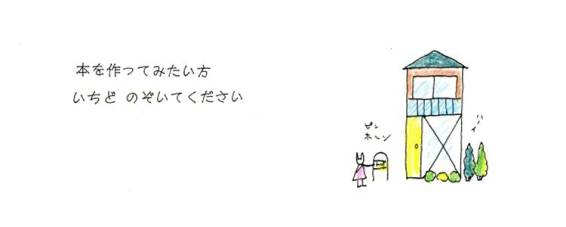 本を作ってみたい方
いちど のぞいてください
ピン
ポーン
ハーイ